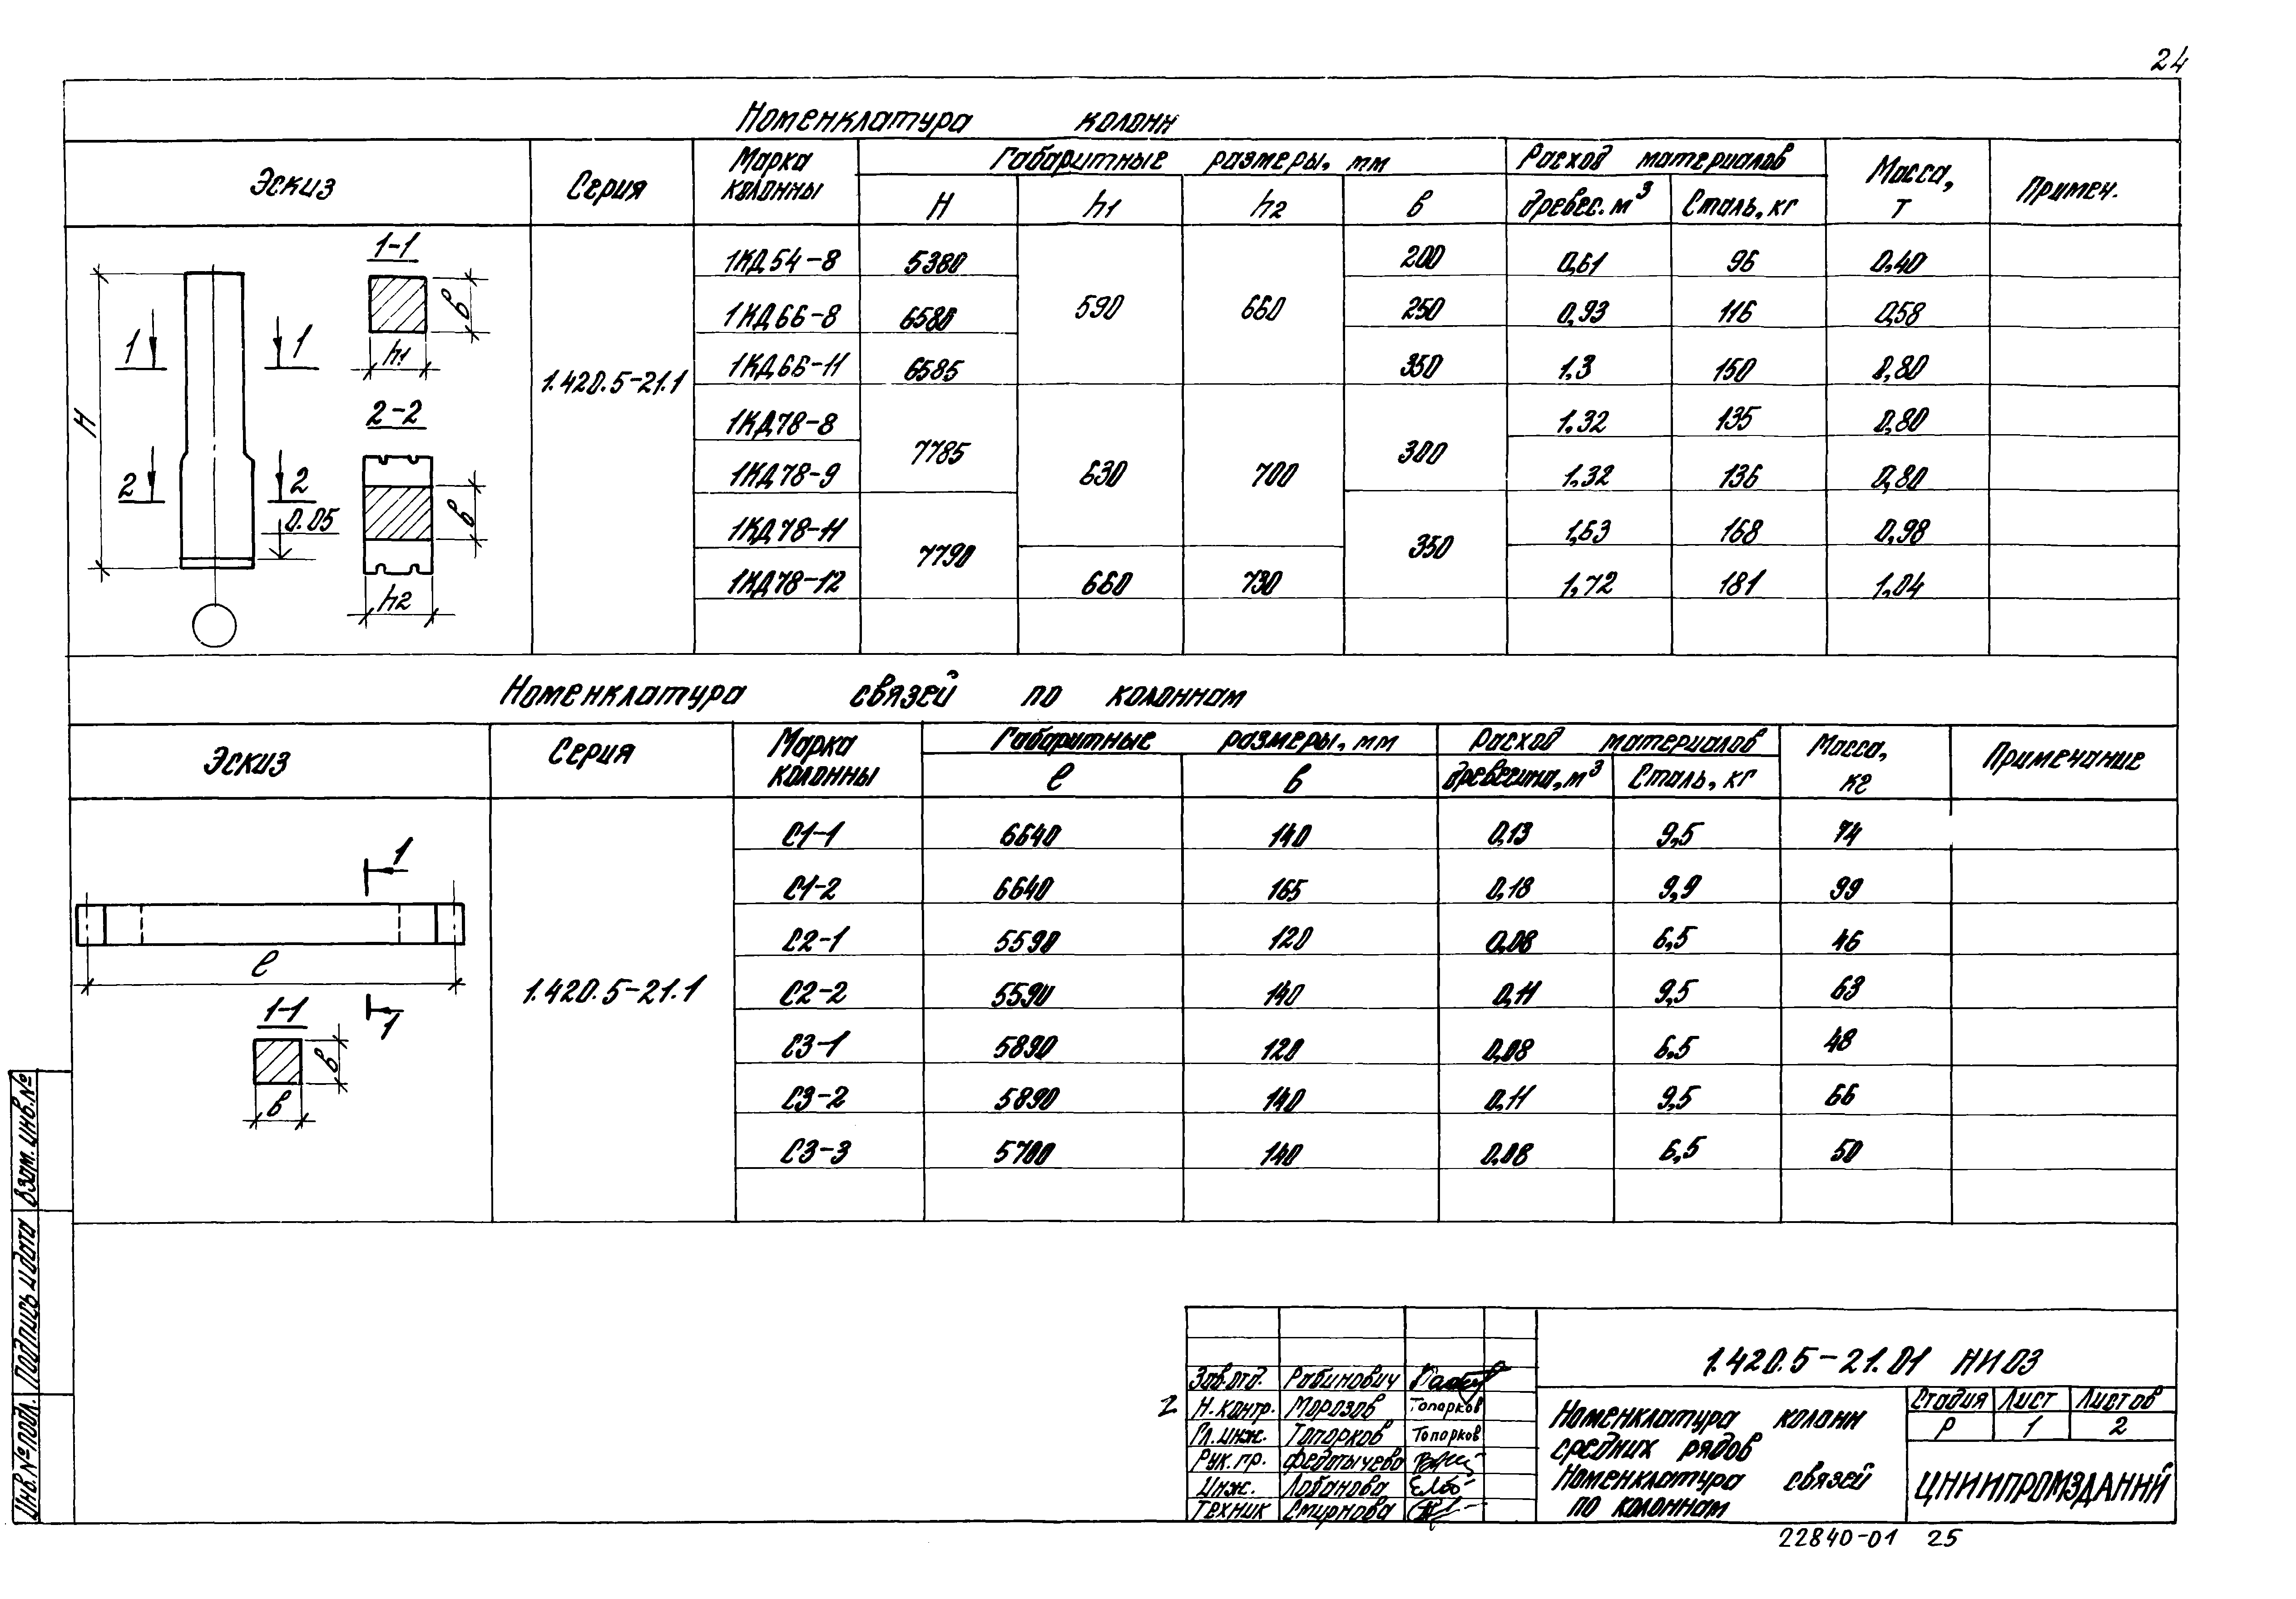 24
Номенклатура колонн
Эскиз Серия Марка колонны Габаритные размеры, мм Расход материалов Масса, т Примеч.
H h1 h2 в древес. м³ Сталь, кг
1-1
в
h1
1 1
2-2
H
2 2
0.05
в
h2
1.420.5-21.1
1КД54-8 5380 590 660 200 0,61 96 0,40
1КД66-8 6580 250 0,93 116 0,58
1КД66-11 6585 350 1,3 150 0,80
1КД78-8 7785 630 700 300 1,32 135 0,80
1КД78-9 1,32 136 0,80
1КД78-11 7790 350 1,63 168 0,98
1КД78-12 660 730 1,72 181 1,04
Номенклатура связей по колоннам
Эскиз Серия Марка колонны Габаритные размеры, мм Расход материалов Масса, кг Примечание
ℓ в древесина, м³ Сталь, кг
1
ℓ
1
1-1
в
в
1.420.5-21.1
С1-1 6640 140 0,13 9,5 74
С1-2 6640 165 0,18 9,9 99
С2-1 5590 120 0,08 6,5 46
С2-2 5590 140 0,11 9,5 63
С3-1 5890 120 0,08 6,5 48
С3-2 5890 140 0,11 9,5 66
С3-3 5700 140 0,08 6,5 50
Взам. инв. №
Подпись и дата
Инв. № подл.
1.420.5-21.01 НИ03
Зав. отд. Рабинович
2
Н. контр. Морозов Топорков
Гл. инж. Топорков Топорков
Рук. гр. Федотычева
Инж. Лобанова
Техник Смирнова
Номенклатура колонн
средних рядов
Номенклатура связей
по колоннам
Стадия Лист Листов
Р 1 2
ЦНИИПРОМЗДАНИЙ
22840-01 25